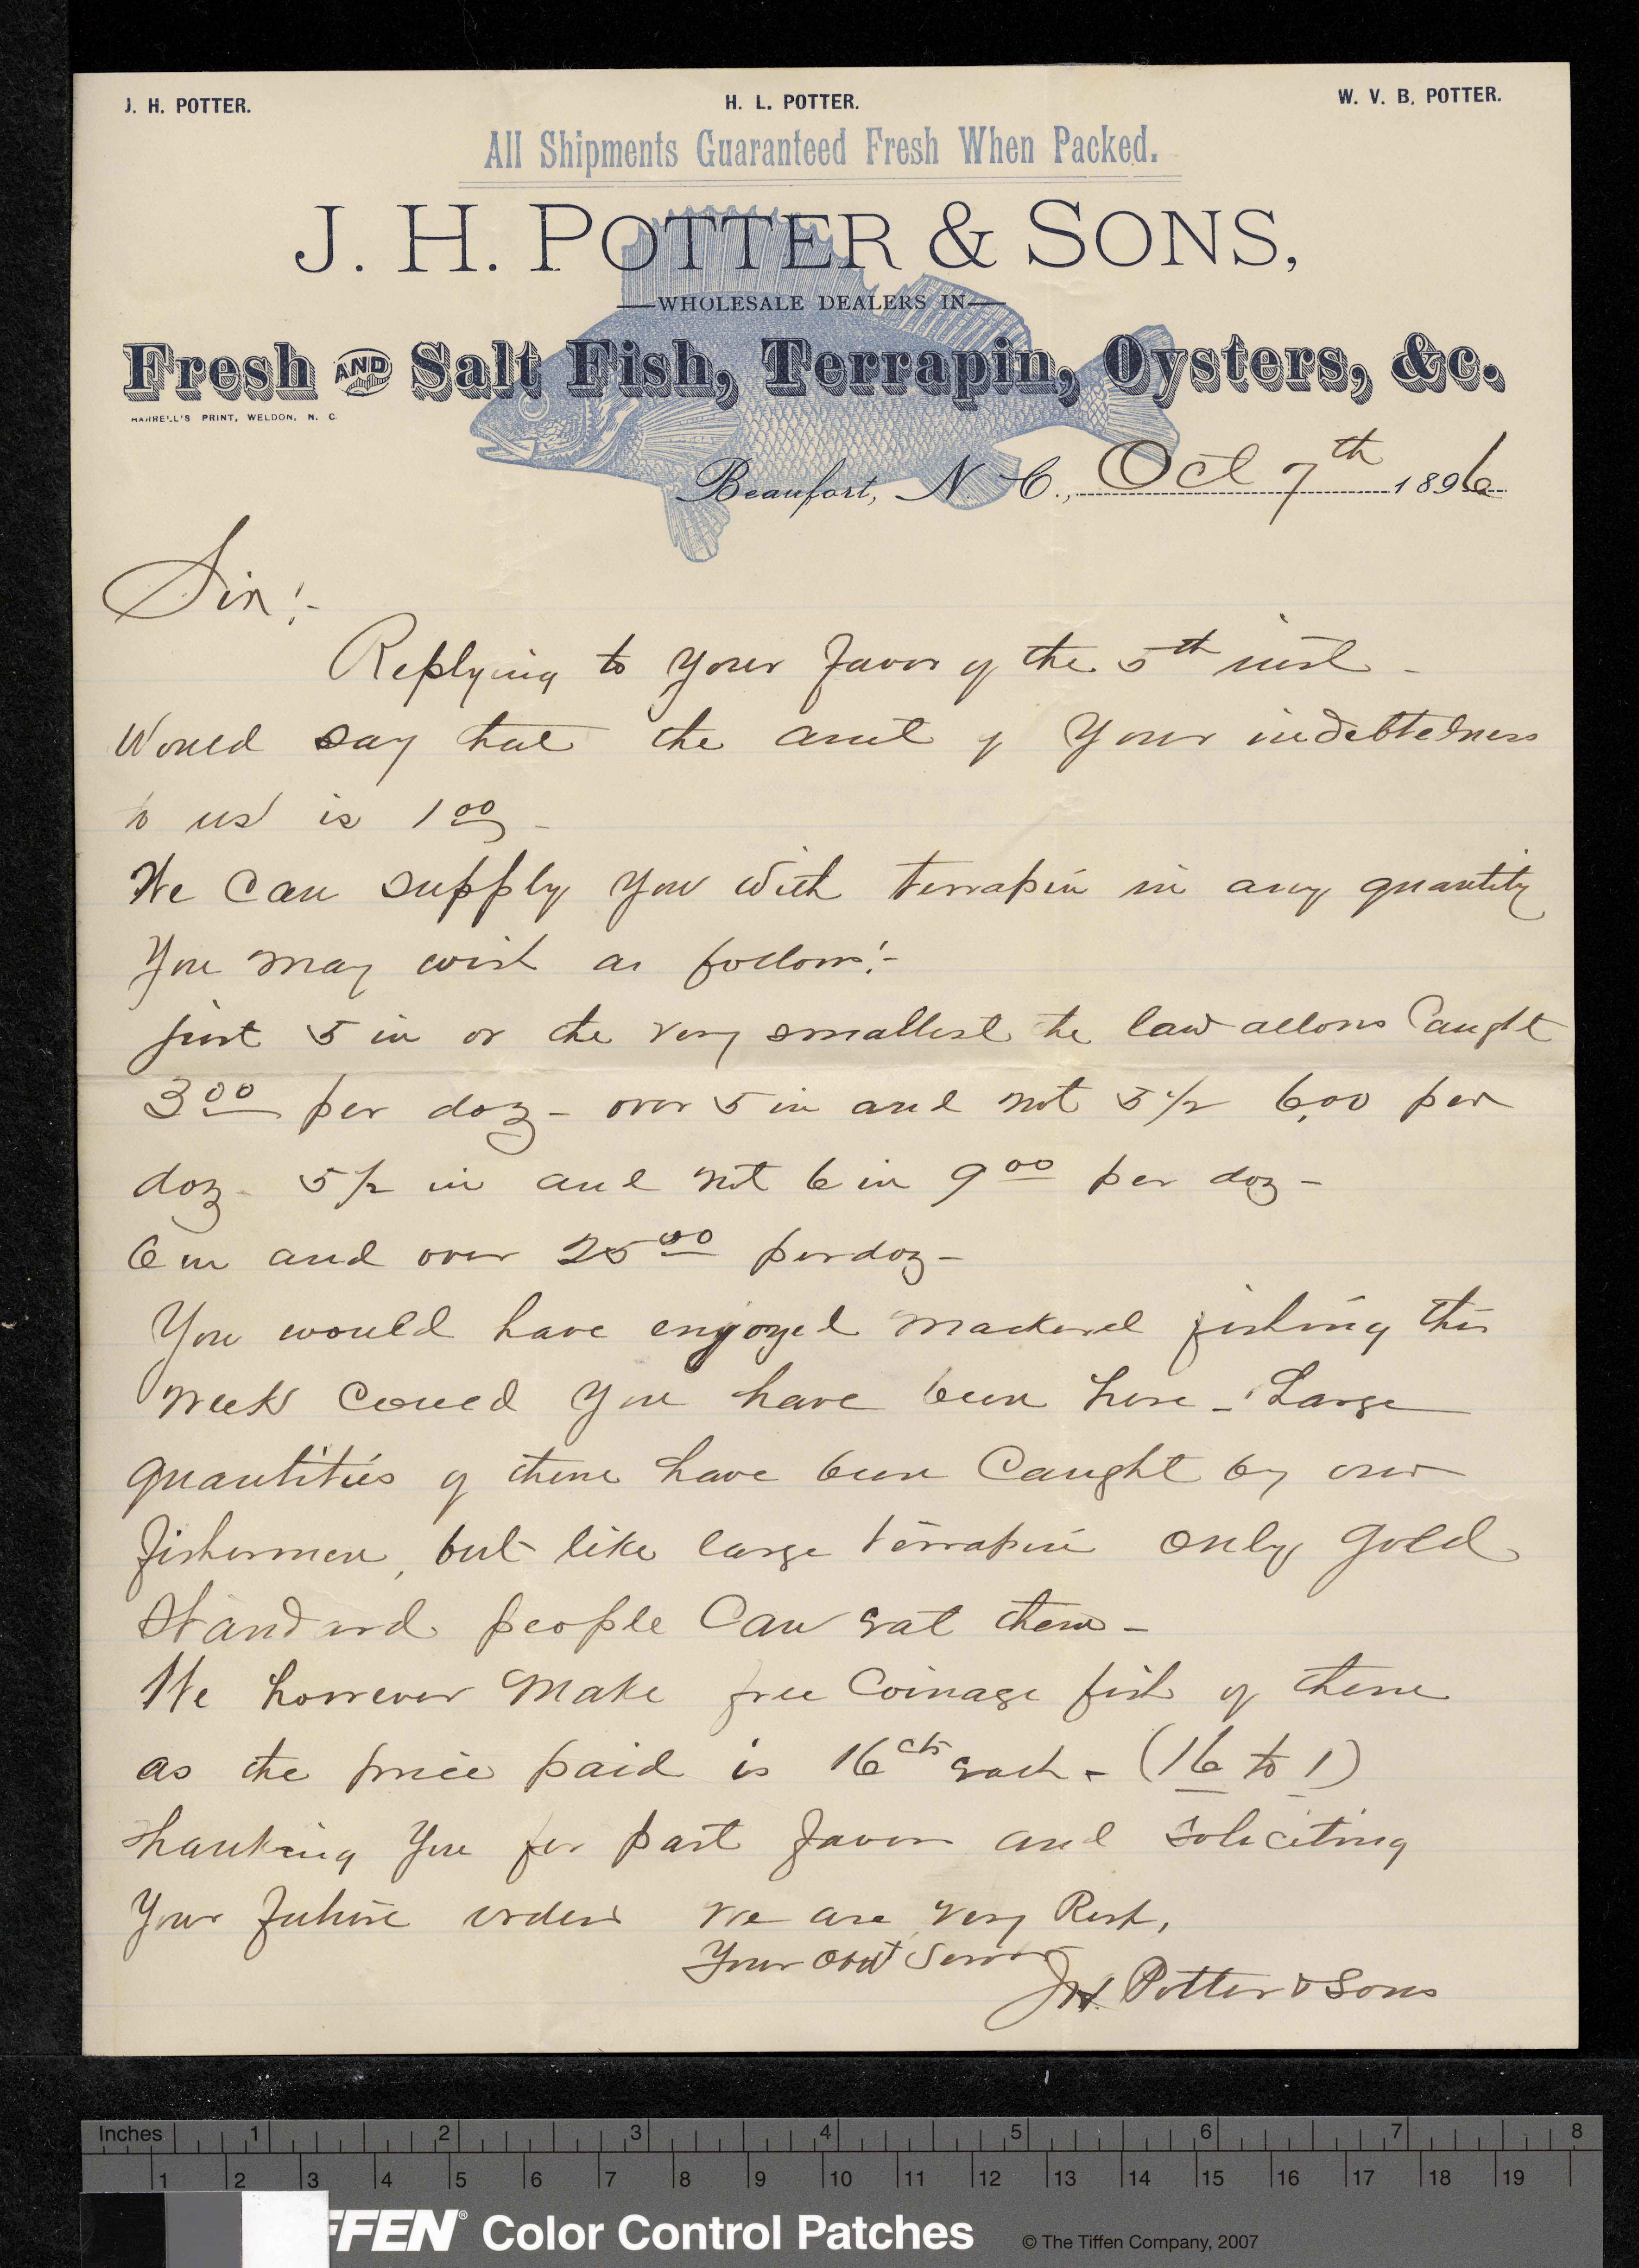 J. H. POTTER. H. L. POTTER. W. V. B. POTTER.
All Shipments Guaranteed Fresh When Packed.
J. H. POTTER & SONS,
—WHOLESALE DEALERS IN—
Fresh AND Salt Fish, Terrapin, Oysters, &c.
HARRELL'S PRINT, WELDON, N. C.
Beaufort, N. C., Oct 7th 1896
Sir!-
Replying to your favor of the 5th inst -
Would say that the amt of your indebtedness
to us is 1 00 -
We can supply you with terrapin in any quantity
you may wish as follows:-
just 5 in or the very smallest the law allows caught
3 00 per doz - over 5 in and not 5 1/2 6,00 per
doz - 5 1/2 in and not 6 in 9 00 per doz -
6 in and over 25 00 per doz -
You would have enjoyed mackerel fishing this
week could you have been here - Large
quantities of them have been caught by our
fishermen, but like large terrapin only gold
standard people can eat them -
We however make free coinage fish of them
as the price paid is 16 cts each - (16 to 1)
thanking you for past favors and soliciting
your future orders we are very Rest,
Your obdt Servts
J H Potter & Sons
Inches 1 2 3 4 5 6 7 8
1 2 3 4 5 6 7 8 9 10 11 12 13 14 15 16 17 18 19
FFEN® Color Control Patches © The Tiffen Company, 2007